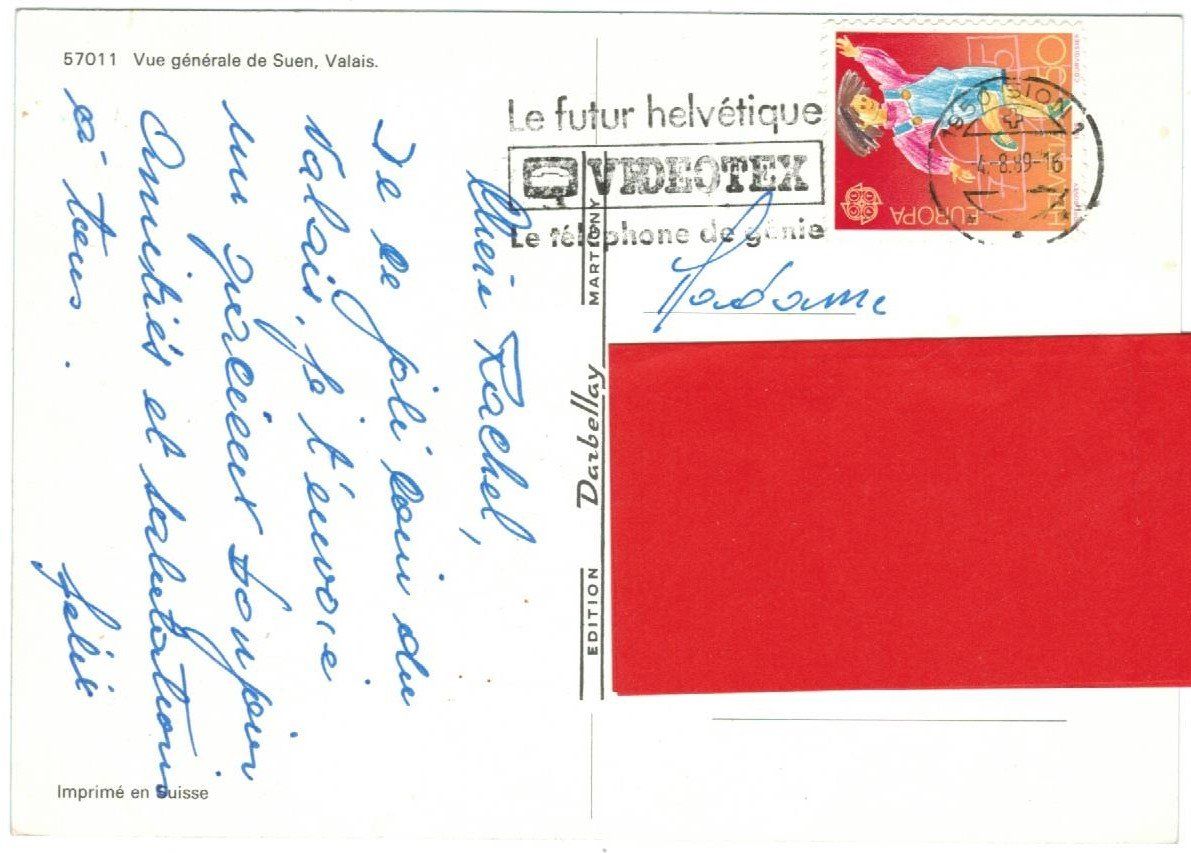 57011 Vue générale de Suen, Valais.
Chère Rachel,
De ce joli coin du
Valais, je t'envoie
un précieux bonjour
Amitiés et salutations
à tous.
Félix
Imprimé en Suisse
EDITION Darbellay MARTIGNY
Le futur helvétique
VIDEOTEX
Le téléphone de génie
1950 SION 1
-4.-8.89-16
HELVETIA 50
EUROPA
COURVOISIER
Madame